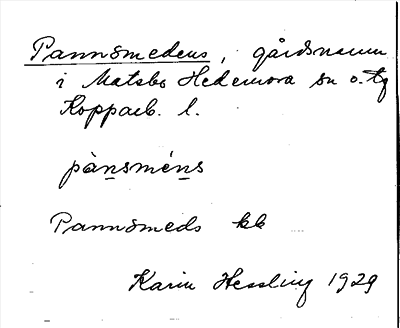 Pannsmedens, gårdsnamn
i Matsbo Hedemora sn o. tg
Kopparb. l.
pànsméns
Pannsmeds kb
Karin Hessling 1929